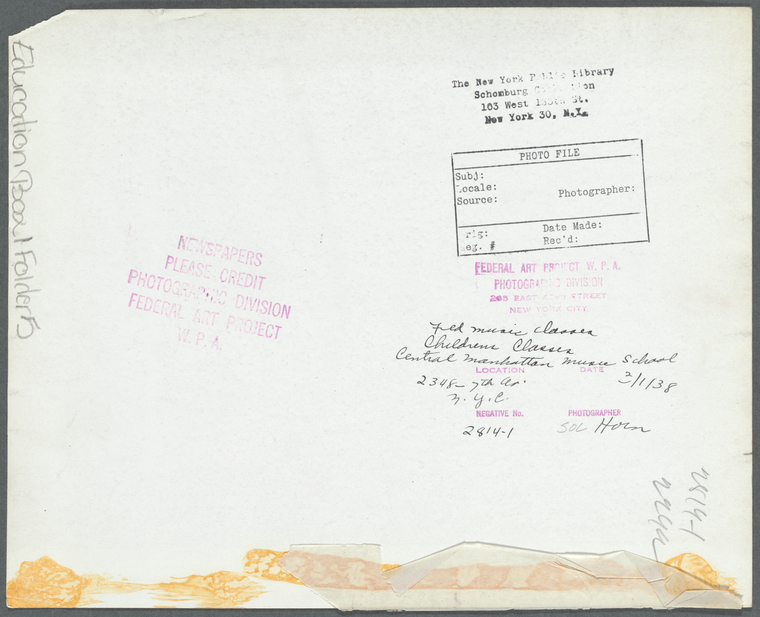 Education Box 1 Folder 5
The New York Public Library
Schomburg Collection
103 West 135th St.
New York 30, N.Y.
PHOTO FILE
Subj:
Locale:
Source:
Photographer:
Orig:
Date Made:
Neg. #
Rec'd:
NEWSPAPERS
PLEASE CREDIT
PHOTOGRAPHIC DIVISION
FEDERAL ART PROJECT
W. P. A.
FEDERAL ART PROJECT W. P. A.
PHOTOGRAPHIC DIVISION
EAST STREET
NEW YORK CITY
Fed music classes
Childrens Classes
Central Manhattan Music School
LOCATION DATE
2348- 7th Av. /1/38
N.Y.C.
NEGATIVE No. PHOTOGRAPHER
2814-1 Sol Horn
2814-1